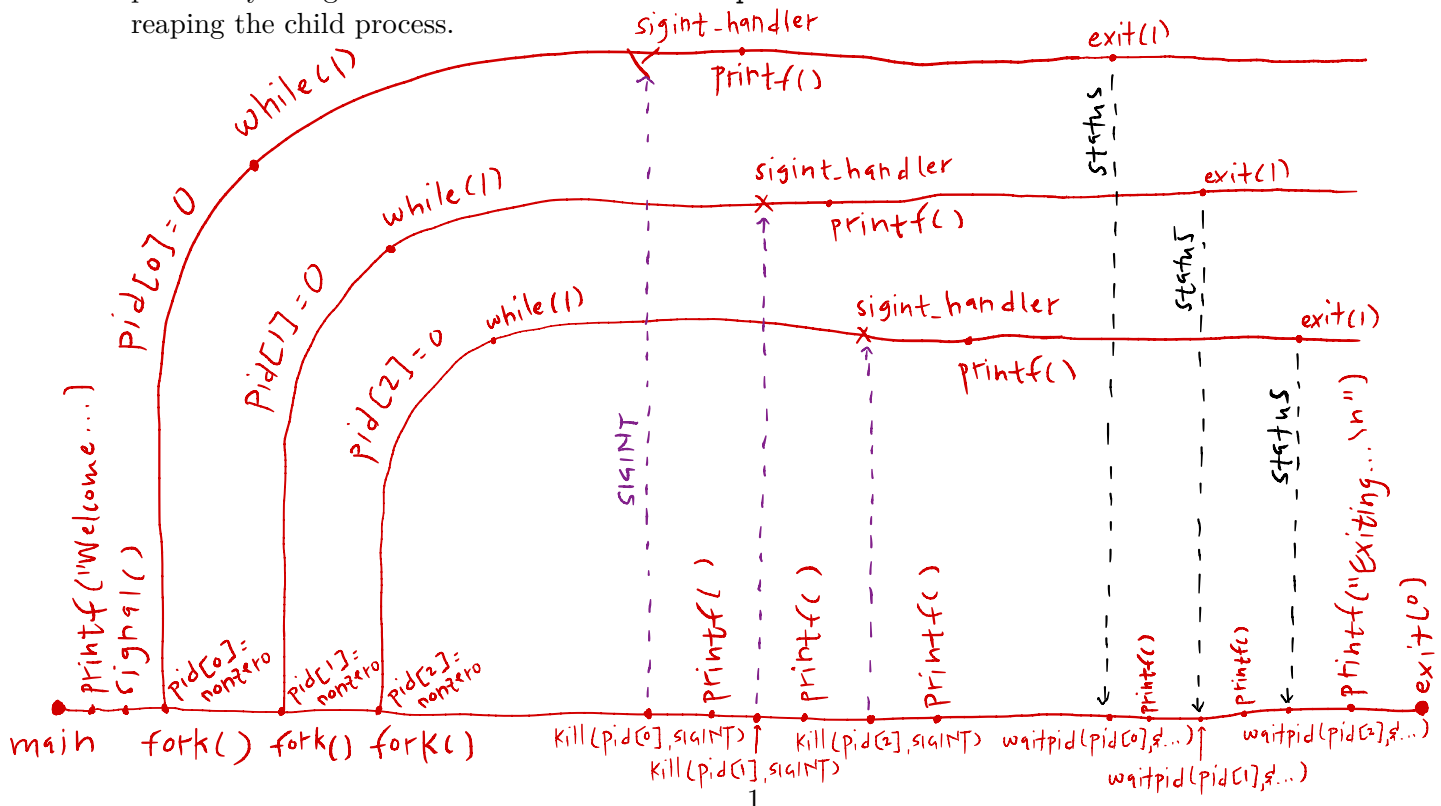 reaping the child process.
sigint_handler
exit(1)
while(1)
printf()
status
sigint_handler
exit(1)
while(1)
printf()
status
pid[0]=0
pid[1]=0
while(1)
sigint_handler
exit(1)
pid[2]=0
printf()
status
SIGINT
printf("Welcome...)
signal()
pid[0]=
nonzero
pid[1]=
nonzero
pid[2]=
nonzero
printf()
printf()
printf()
printf()
printf()
printf("Exiting...\n")
exit(0)
main
fork()
fork()
fork()
kill(pid[0],SIGINT)
kill(pid[1],SIGINT)
kill(pid[2],SIGINT)
waitpid(pid[0],&...)
waitpid(pid[1],&...)
waitpid(pid[2],&...)
1